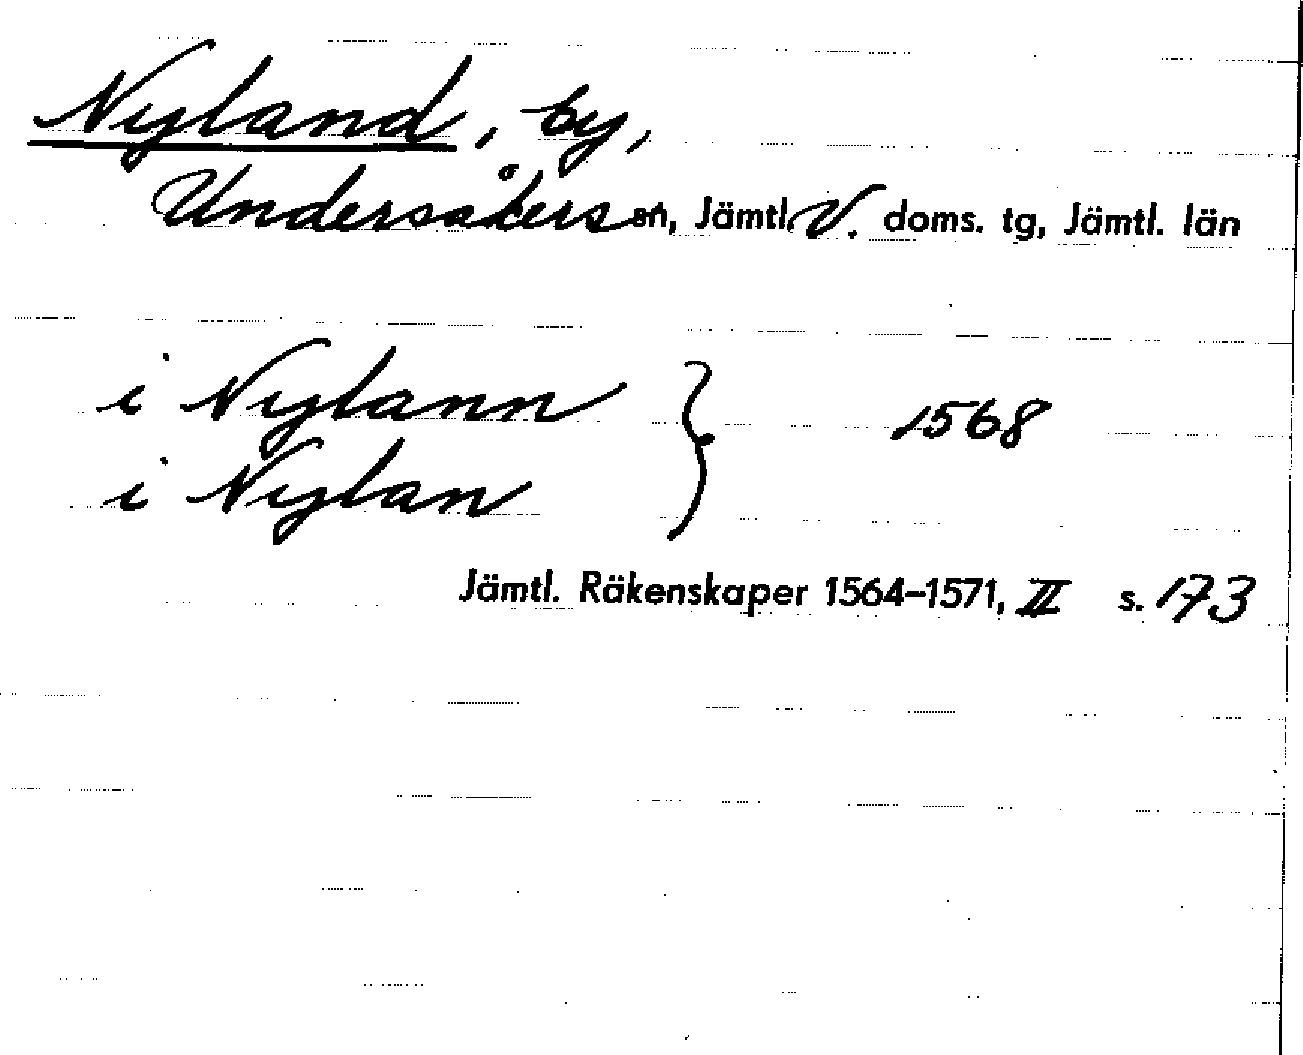 Nyland, by,
Undersåkers sn, Jämtl. V. doms. tg, Jämtl. län
i Nylann } 1568
i Nylan
Jämtl. Räkenskaper 1564–1571, II s. 173